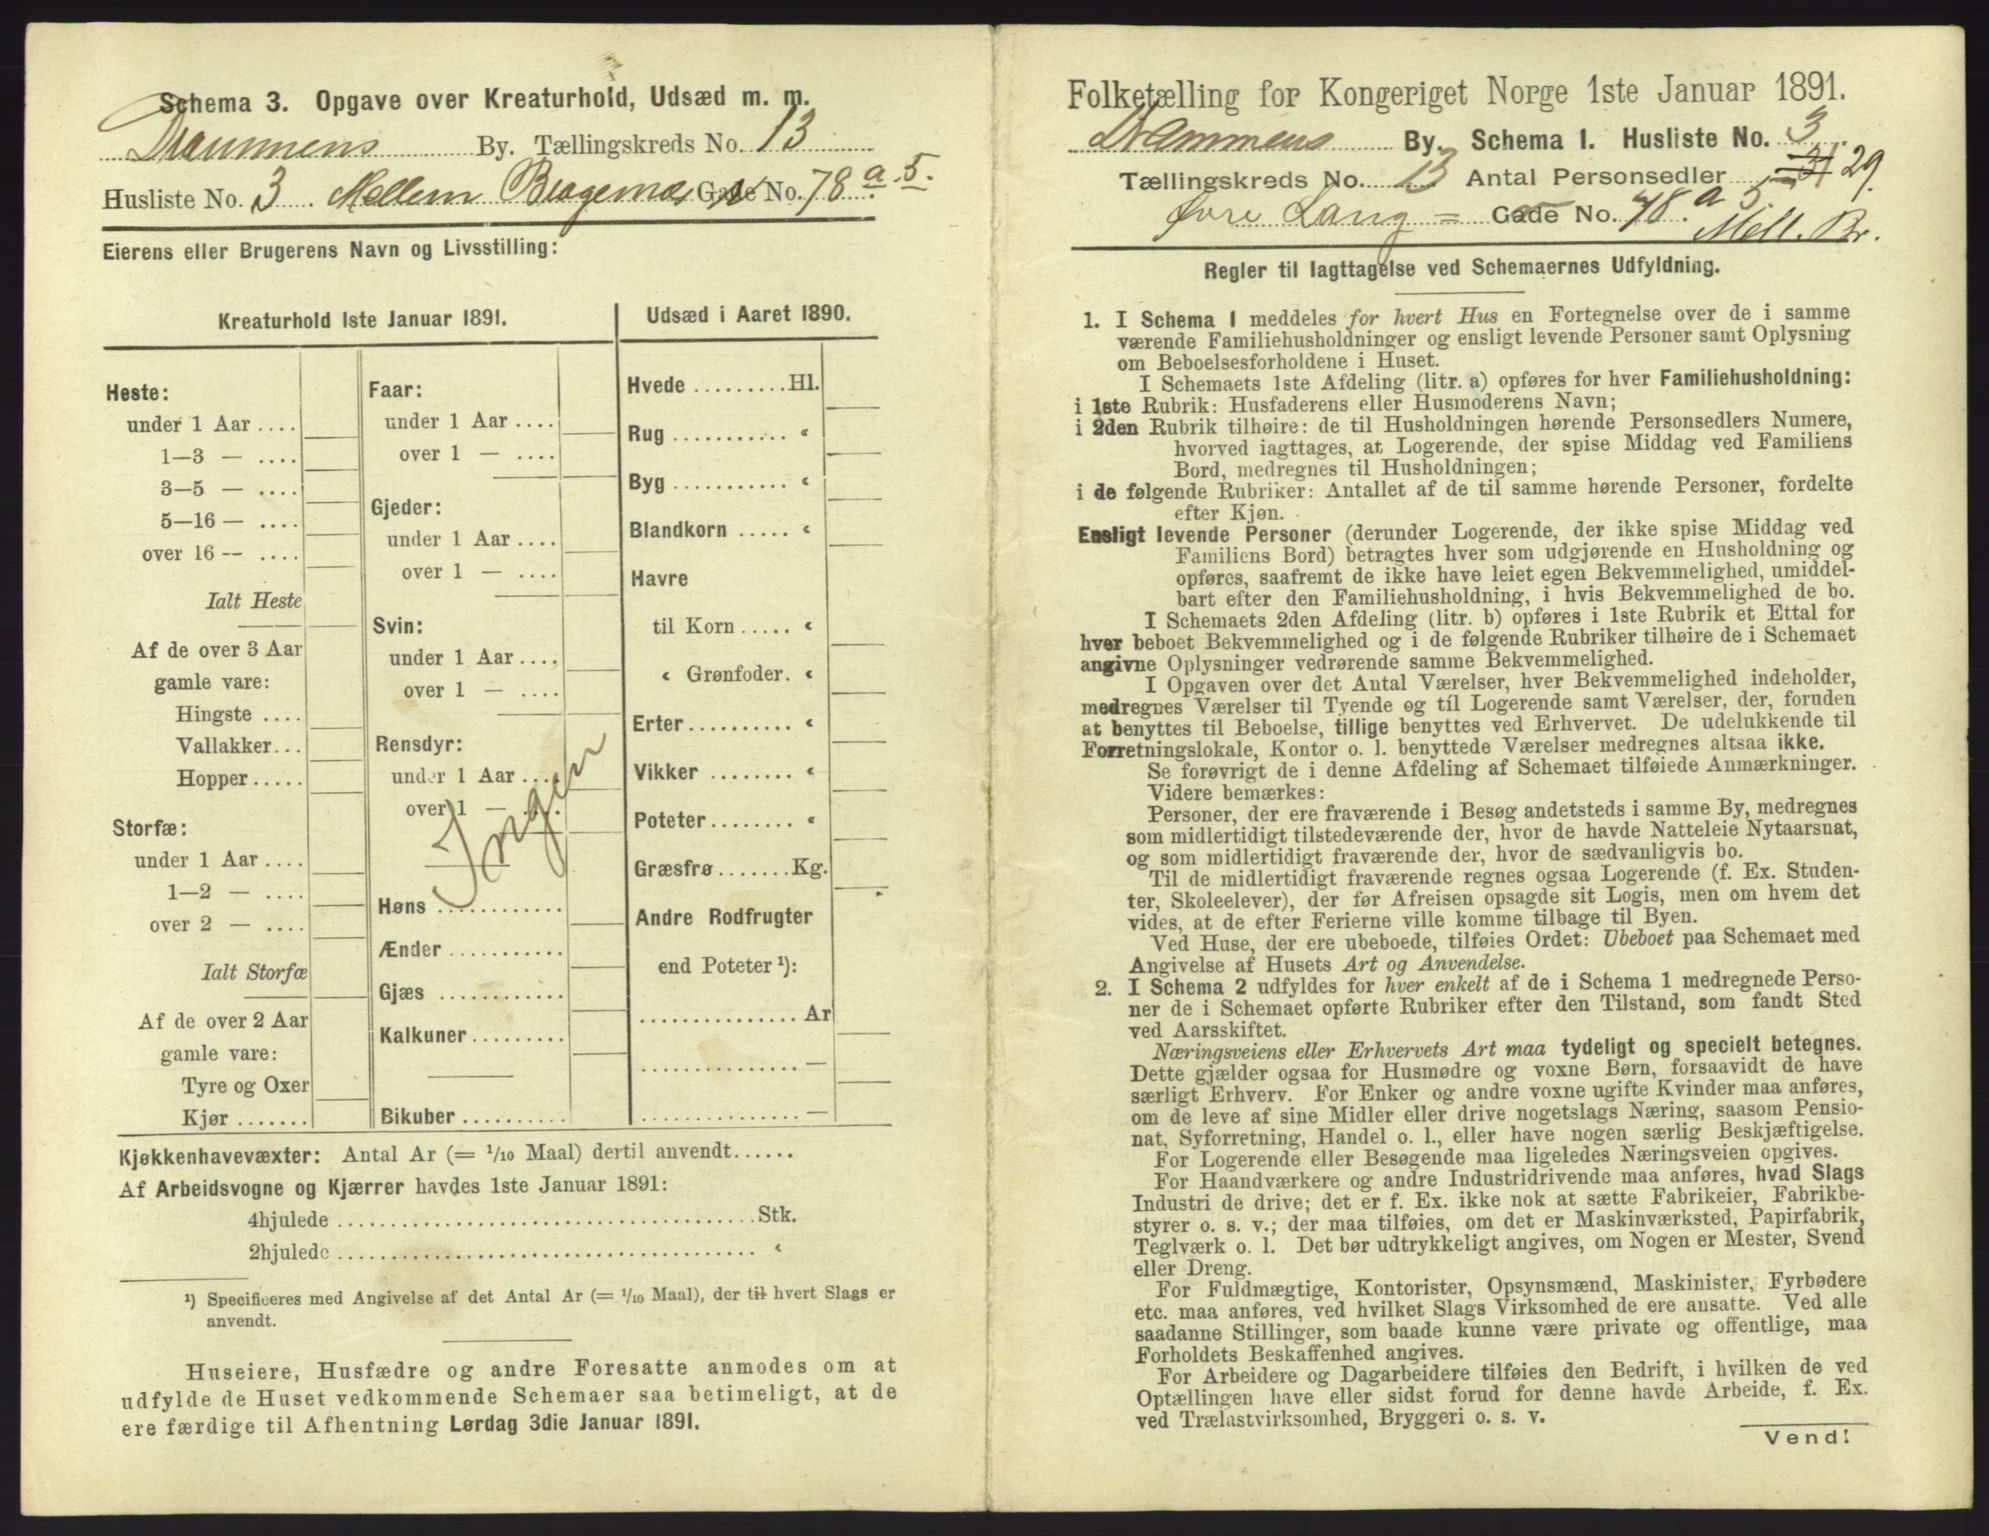 Schema 3. Opgave over Kreaturhold, Udsæd m. m.
Drammens By. Tællingskreds No. 13
Husliste No. 3 Mellem Bragernæs Gade No. 78 a. 5.
Eierens eller Brugerens Navn og Livsstilling:
Kreaturhold 1ste Januar 1891.
Heste:
under 1 Aar ....
1—3 — ....
3—5 — ....
5—16 — ....
over 16 — ....
Ialt Heste
Af de over 3 Aar
gamle vare:
Hingste ....
Vallakker...
Hopper.....
Storfæ:
under 1 Aar ....
1—2 — ....
over 2 — ....
Ialt Storfæ
Af de over 2 Aar
gamle vare:
Tyre og Oxer
Kjør .......
Faar:
under 1 Aar ....
over 1 — ....
Gjeder:
under 1 Aar ....
over 1 — ....
Svin:
under 1 Aar ....
over 1 — ....
Rensdyr:
under 1 Aar ....
over 1 — ....
Ingen
Høns ............
Ænder ...........
Gjæs ............
Kalkuner .........
Bikuber ..........
Udsæd i Aaret 1890.
Hvede .........Hl.
Rug ........... «
Byg ........... «
Blandkorn ..... «
Havre
til Korn ..... «
« Grønfoder. «
Erter .......... «
Vikker ........ «
Poteter........ «
Græsfrø.......Kg.
Andre Rodfrugter
end Poteter ¹):
............... Ar
............... —
............... —
Kjøkkenhavevæxter: Antal Ar (= 1/10 Maal) dertil anvendt......
Af Arbeidsvogne og Kjærrer havdes 1ste Januar 1891:
4hjulede ........................................Stk.
2hjulede ........................................ «
¹) Specificeres med Angivelse af det Antal Ar (= 1/10 Maal), der til hvert Slags er
anvendt.
Huseiere, Husfædre og andre Foresatte anmodes om at
udfylde de Huset vedkommende Schemaer saa betimeligt, at de
ere færdige til Afhentning Lørdag 3die Januar 1891.
Folketælling for Kongeriget Norge 1ste Januar 1891.
Drammens By. Schema I. Husliste No. 3
Tællingskreds No. 13 Antal Personsedler 31 29.
Øvre Lang = Gade No. 78. a 5
Mell. Br.
Regler til Iagttagelse ved Schemaernes Udfyldning.
1. I Schema 1 meddeles for hvert Hus en Fortegnelse over de i samme
værende Familiehusholdninger og ensligt levende Personer samt Oplysning
om Beboelsesforholdene i Huset.
I Schemaets 1ste Afdeling (litr. a) opføres for hver Familiehusholdning:
i 1ste Rubrik: Husfaderens eller Husmoderens Navn;
i 2den Rubrik tilhøire: de til Husholdningen hørende Personsedlers Numere,
hvorved iagttages, at Logerende, der spise Middag ved Familiens
Bord, medregnes til Husholdningen;
i de følgende Rubriker: Antallet af de til samme hørende Personer, fordelte
efter Kjøn.
Ensligt levende Personer (derunder Logerende, der ikke spise Middag ved
Familiens Bord) betragtes hver som udgjørende en Husholdning og
opføres, saafremt de ikke have leiet egen Bekvemmelighed, umiddel-
bart efter den Familiehusholdning, i hvis Bekvemmelighed de bo.
I Schemaets 2den Afdeling (litr. b) opføres i 1ste Rubrik et Ettal for
hver beboet Bekvemmelighed og i de følgende Rubriker tilhøire de i Schemaet
angivne Oplysninger vedrørende samme Bekvemmelighed.
I Opgaven over det Antal Værelser, hver Bekvemmelighed indeholder,
medregnes Værelser til Tyende og til Logerende samt Værelser, der, foruden
at benyttes til Beboelse, tillige benyttes ved Erhvervet. De udelukkende til
Forretningslokale, Kontor o. l. benyttede Værelser medregnes altsaa ikke.
Se forøvrigt de i denne Afdeling af Schemaet tilføiede Anmærkninger.
Videre bemærkes:
Personer, der ere fraværende i Besøg andetsteds i samme By, medregnes
som midlertidigt tilstedeværende der, hvor de havde Natteleie Nytaarsnat,
og som midlertidigt fraværende der, hvor de sædvanligvis bo.
Til de midlertidigt fraværende regnes ogsaa Logerende (f. Ex. Studen-
ter, Skoleelever), der før Afreisen opsagde sit Logis, men om hvem det
vides, at de efter Ferierne ville komme tilbage til Byen.
Ved Huse, der ere ubeboede, tilføies Ordet: Ubeboet paa Schemaet med
Angivelse af Husets Art og Anvendelse.
2. I Schema 2 udfyldes for hver enkelt af de i Schema 1 medregnede Perso-
ner de i Schemaet opførte Rubriker efter den Tilstand, som fandt Sted
ved Aarsskiftet.
Næringsveiens eller Erhvervets Art maa tydeligt og specielt betegnes.
Dette gjælder ogsaa for Husmødre og voxne Børn, forsaavidt de have
særligt Erhverv. For Enker og andre voxne ugifte Kvinder maa anføres,
om de leve af sine Midler eller drive nogetslags Næring, saasom Pensio-
nat, Syforretning, Handel o. l., eller have nogen særlig Beskjæftigelse.
For Logerende eller Besøgende maa ligeledes Næringsveien opgives.
For Haandværkere og andre Industridrivende maa anføres, hvad Slags
Industri de drive; det er f. Ex. ikke nok at sætte Fabrikeier, Fabrikbe-
styrer o. s. v.; der maa tilføies, om det er Maskinværksted, Papirfabrik,
Teglværk o. l. Det bør udtrykkeligt angives, om Nogen er Mester, Svend
eller Dreng.
For Fuldmægtige, Kontorister, Opsynsmænd, Maskinister, Fyrbødere
etc. maa anføres, ved hvilket Slags Virksomhed de ere ansatte. Ved alle
saadanne Stillinger, som baade kunne være private og offentlige, maa
Forholdets Beskaffenhed angives.
For Arbeidere og Dagarbeidere tilføies den Bedrift, i hvilken de ved
Optællingen have eller sidst forud for denne havde Arbeide, f. Ex.
ved Trælastvirksomhed, Bryggeri o. s. v.
Vend!